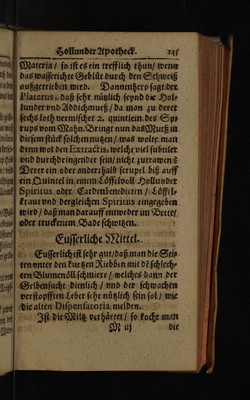 Hollunder Apotheck. 145
Materia / so ist es ein trefflich thun / wenn
das wasserichte Geblüt durch den Schweiß
außgetrieben wird. Dannenhero sagt der
Platerus, daß sehr nützlich seynd die Hol-
lunder und Addichmueß / da man zu der
sechs loth vermischet 2. quintlein des Sy-
rups vom Mahn. Bringt nun das Mueß in
diesem stück solchen nutzen / was wolte man
denn wol den Extractis, welche viel subtieler
und durchdringender sein / nicht zutrawen?
Deret ein oder anderthalb scrupel biß auff
ein Quintel in einem Löffelvoll Hollunder
Spiritus oder Cardenbenditten / Löffel-
kraut und dergleichen Spiritus eingegeben
wird / daß man darauff entweder im Bette /
oder truckenem Bade schwitzen.
Eusserliche Mittel.
Eusserlich ist sehr gut / daß man die Sei-
ten unter den kurtzen Riebben mit dē schlech-
ten Blumenöll schmiere / welches dann der
Gelbensucht dienlich / und der schwachen
verstopfften Leber sehr nützlich sein sol / wie
die alten Dispensatoria melden.
Ist die Miltz verhärtet / so koche man
M iij die